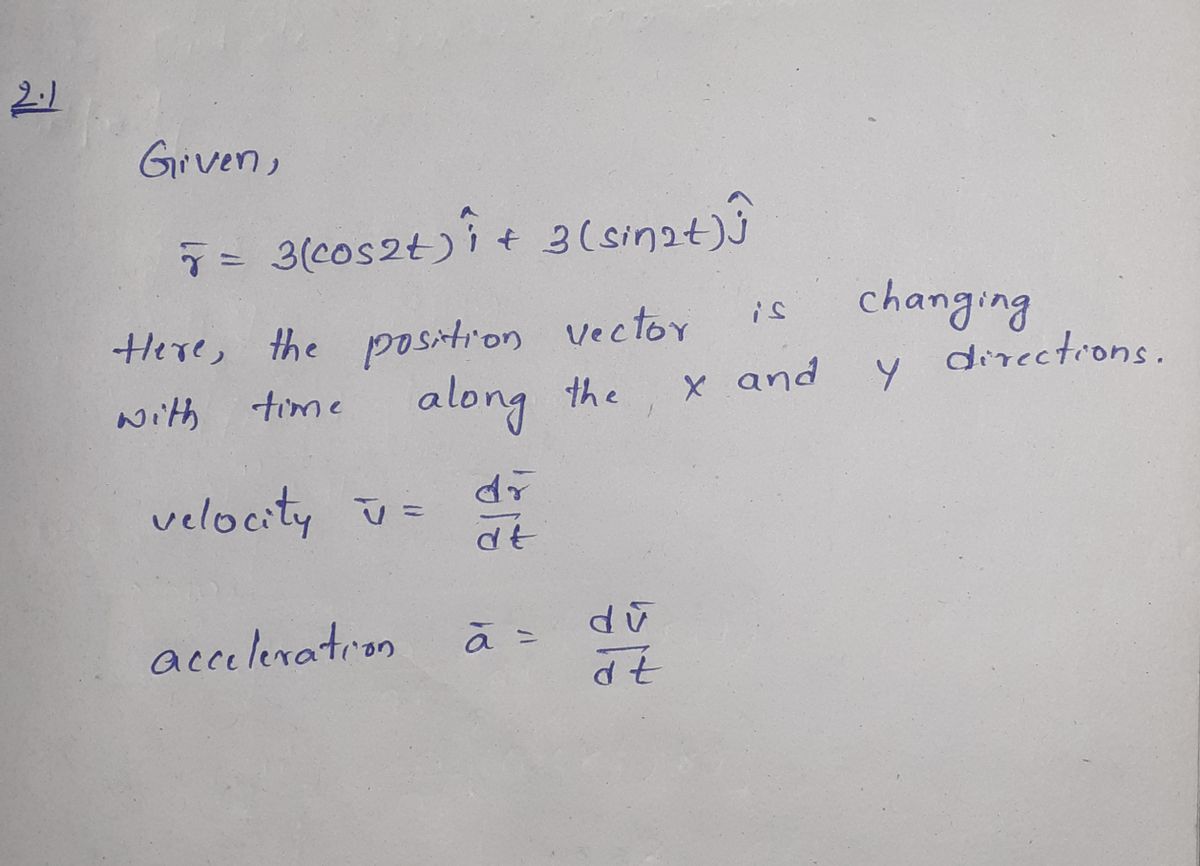 2.1
Given,
r̄ = 3(cos2t) î + 3(sin2t) ĵ
Here, the position vector is changing
with time along the x and y directions.
velocity v̄ = dr̄/dt
acceleration ā = dv̄/dt